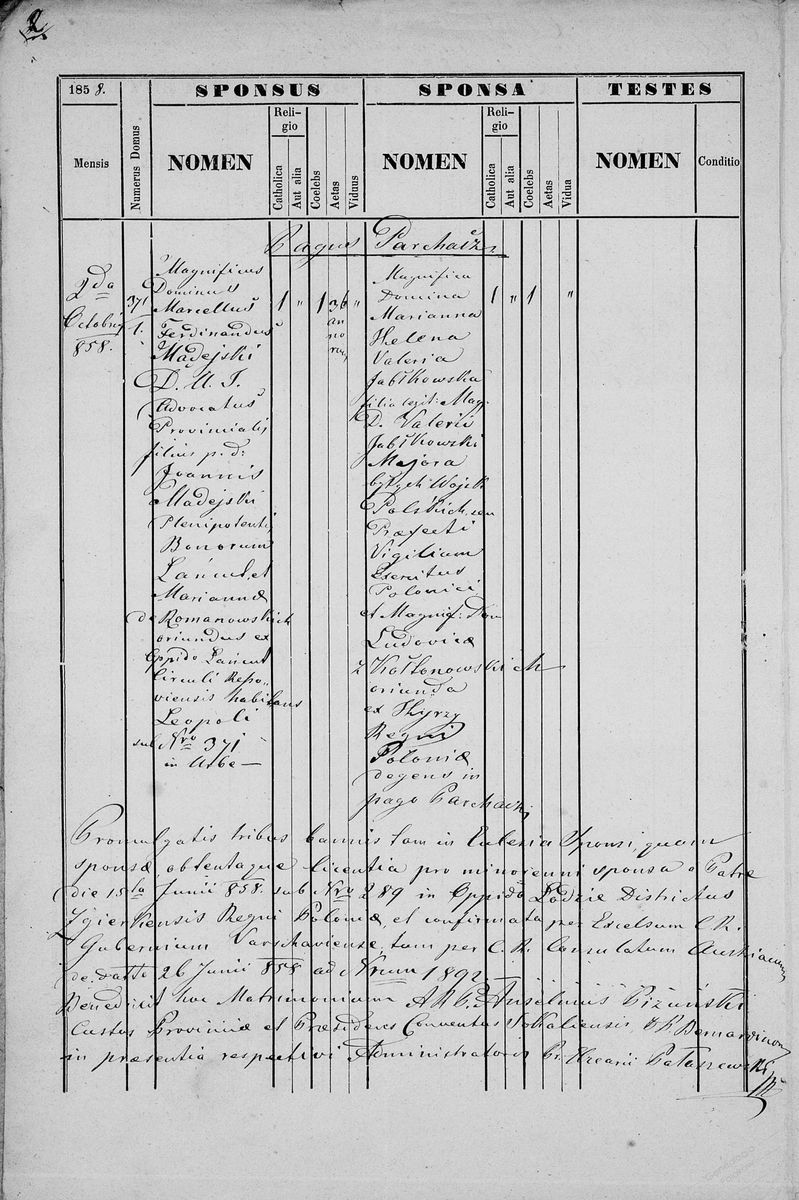 2
185 8.
SPONSUS
SPONSA
TESTES
Mensis
Numerus Domus
NOMEN
Reli-
gio
Catholica
Aut alia
Coelebs
Aetas
Viduus
NOMEN
Reli-
gio
Catholica
Aut alia
Coelebs
Aetas
Vidua
NOMEN
Conditio
Pagus Parchacz
2da
Octobris
858.
371
1.
Magnificus
Dominus
Marcellus
Ferdinandus
Madejski
D. U. J.
Advocatus
Provincialis
filius p. d:
Joannis
Madejski
Plenipotentis
Bonorum
Łańcut, et
Mariannæ
de Romanowskich
oriundus ex
Oppido Łańcut
Circuli Rzeszo-
viensis habitans
Leopoli
sub Nro 371
in Urbe
1
"
1
36
an
no
rum
"
Magnifica
Domina
Marianna
Helena
Valeria
Jabłkowska
filia legit: Mag:
D. Valerii
Jabłkowski
Majora
byłych Wojsk
Polskich, seu
Præfecti
Vigilium
Exercitus
Polonici
et Magnif: Dom
Ludovicæ
z Kołtonowskich
oriunda
ex
Regni
Poloniæ
degens in
pago Parchacz
1
"
1
"
Promulgatis tribus bannis tam in Eclesia Sponsi, quam
sponsæ, obtentaque licentia pro minorenni sponsa a Patre
die 15ta Junii 858. sub Nro 289 in Oppido Lodzie Districtus
Zgierkiensis Regni Poloniæ, et confirmata per Excelsum C. R.
Gubernium Varschaviense, tam per C. R. Consulatum Austriacum
de datto 26 Junii 858 ad Nrum 1892.
Benedixit hoc Matrimonium A. R. P. Anselmus Piżuński
Custos Provinciæ et Præsidens Conventus Sokaliensis, Bernardinorum
in præsentia respectivi Administratoris Pr. Elzearii Pałaszewski